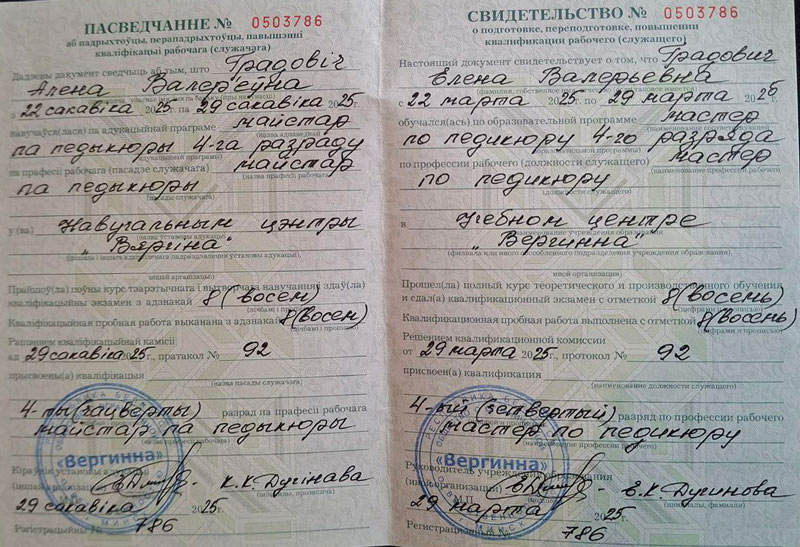 ПАСВЕДЧАННЕ № 0503786
аб падрыхтоўцы, перападрыхтоўцы, павышэнні
кваліфікацыі рабочага (служачага)
Дадзены дакумент сведчыць аб тым, што Градовіч
Алена Валер'еўна
з 22 сакавіка 2025 г. па 29 сакавіка 2025 г.
навучаўся(лася) па адукацыйнай праграме майстар
па педыкюры 4-га разраду
(адукацыйнай праграмы)
па прафесіі рабочага (пасадзе служачага) майстар
(назва прафесіі рабочага)
па педыкюры
(пасады служачага)
у (ва) Навучальным цэнтры
(назва ўстановы адукацыі,
"Вяргина"
іншай арганізацыі)
Прайшоў(ла) поўны курс тэарэтычнага і вытворчага навучання і здаў(ла)
кваліфікацыйны экзамен з адзнакай 8 (восем)
(лічбамі і прапісам)
Кваліфікацыйная пробная работа выканана з адзнакай 8 (восем)
(лічбамі і прапісам)
Рашэннем кваліфікацыйнай камісіі
ад 29 сакавіка 2025 г., пратакол № 92
прысвоены(а) кваліфікацыя
(назва пасады служачага)
4-ты (чацвёрты) разрад па прафесіі рабочага
майстар па педыкюры
(назва прафесіі рабочага)
Кіраўнік установы адукацыі
(іншай арганізацыі) К.К. Дугінава
(ініцыялы, прозвішча)
М.П.
29 сакавіка 2025 г.
Рэгістрацыйны № 786
«Вергинна»
МИНСК
СВИДЕТЕЛЬСТВО № 0503786
о подготовке, переподготовке, повышении
квалификации рабочего (служащего)
Настоящий документ свидетельствует о том, что Градович
Елена Валерьевна
(фамилия, собственное имя, отчество (если таковое имеется)
с 22 марта 2025 г. по 29 марта 2025
обучался(ась) по образовательной программе мастер
по педикюру 4-го разряда
(образовательной программы)
по профессии рабочего (должности служащего) мастер
(наименование профессии рабочего)
по педикюру
(должности служащего)
в Учебном центре
(наименование учреждения образования,
"Вергинна"
филиала или иного обособленного подразделения учреждения образования,
иной организации)
Прошел(ла) полный курс теоретического и производственного обучения
и сдал(а) квалификационный экзамен с отметкой 8 (восемь)
(цифрами и прописью)
Квалификационная пробная работа выполнена с отметкой 8 (восемь)
(цифрами и прописью)
Решением квалификационной комиссии
от 29 марта 2025 г., протокол № 92
присвоен(а) квалификация
(наименование должности служащего)
4-ый (четвертый) разряд по профессии рабочего
мастер по педикюру
(наименование профессии рабочего)
Руководитель учреждения образования
(иной организации) Е.К. Дугинова
(инициалы, фамилия)
М.П.
29 марта 2025 г.
Регистрационный № 786
«Вергинна»
МИНСК